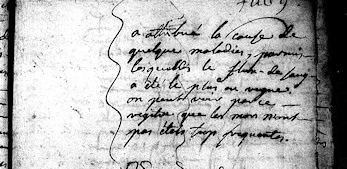 a attribué la cause de
quelque maladies, parmis
lesquelles le flux de sang
a été le plus en vogue.
on peut voir par ce
registre que les mors n'ont
pas étés trop frequentes.